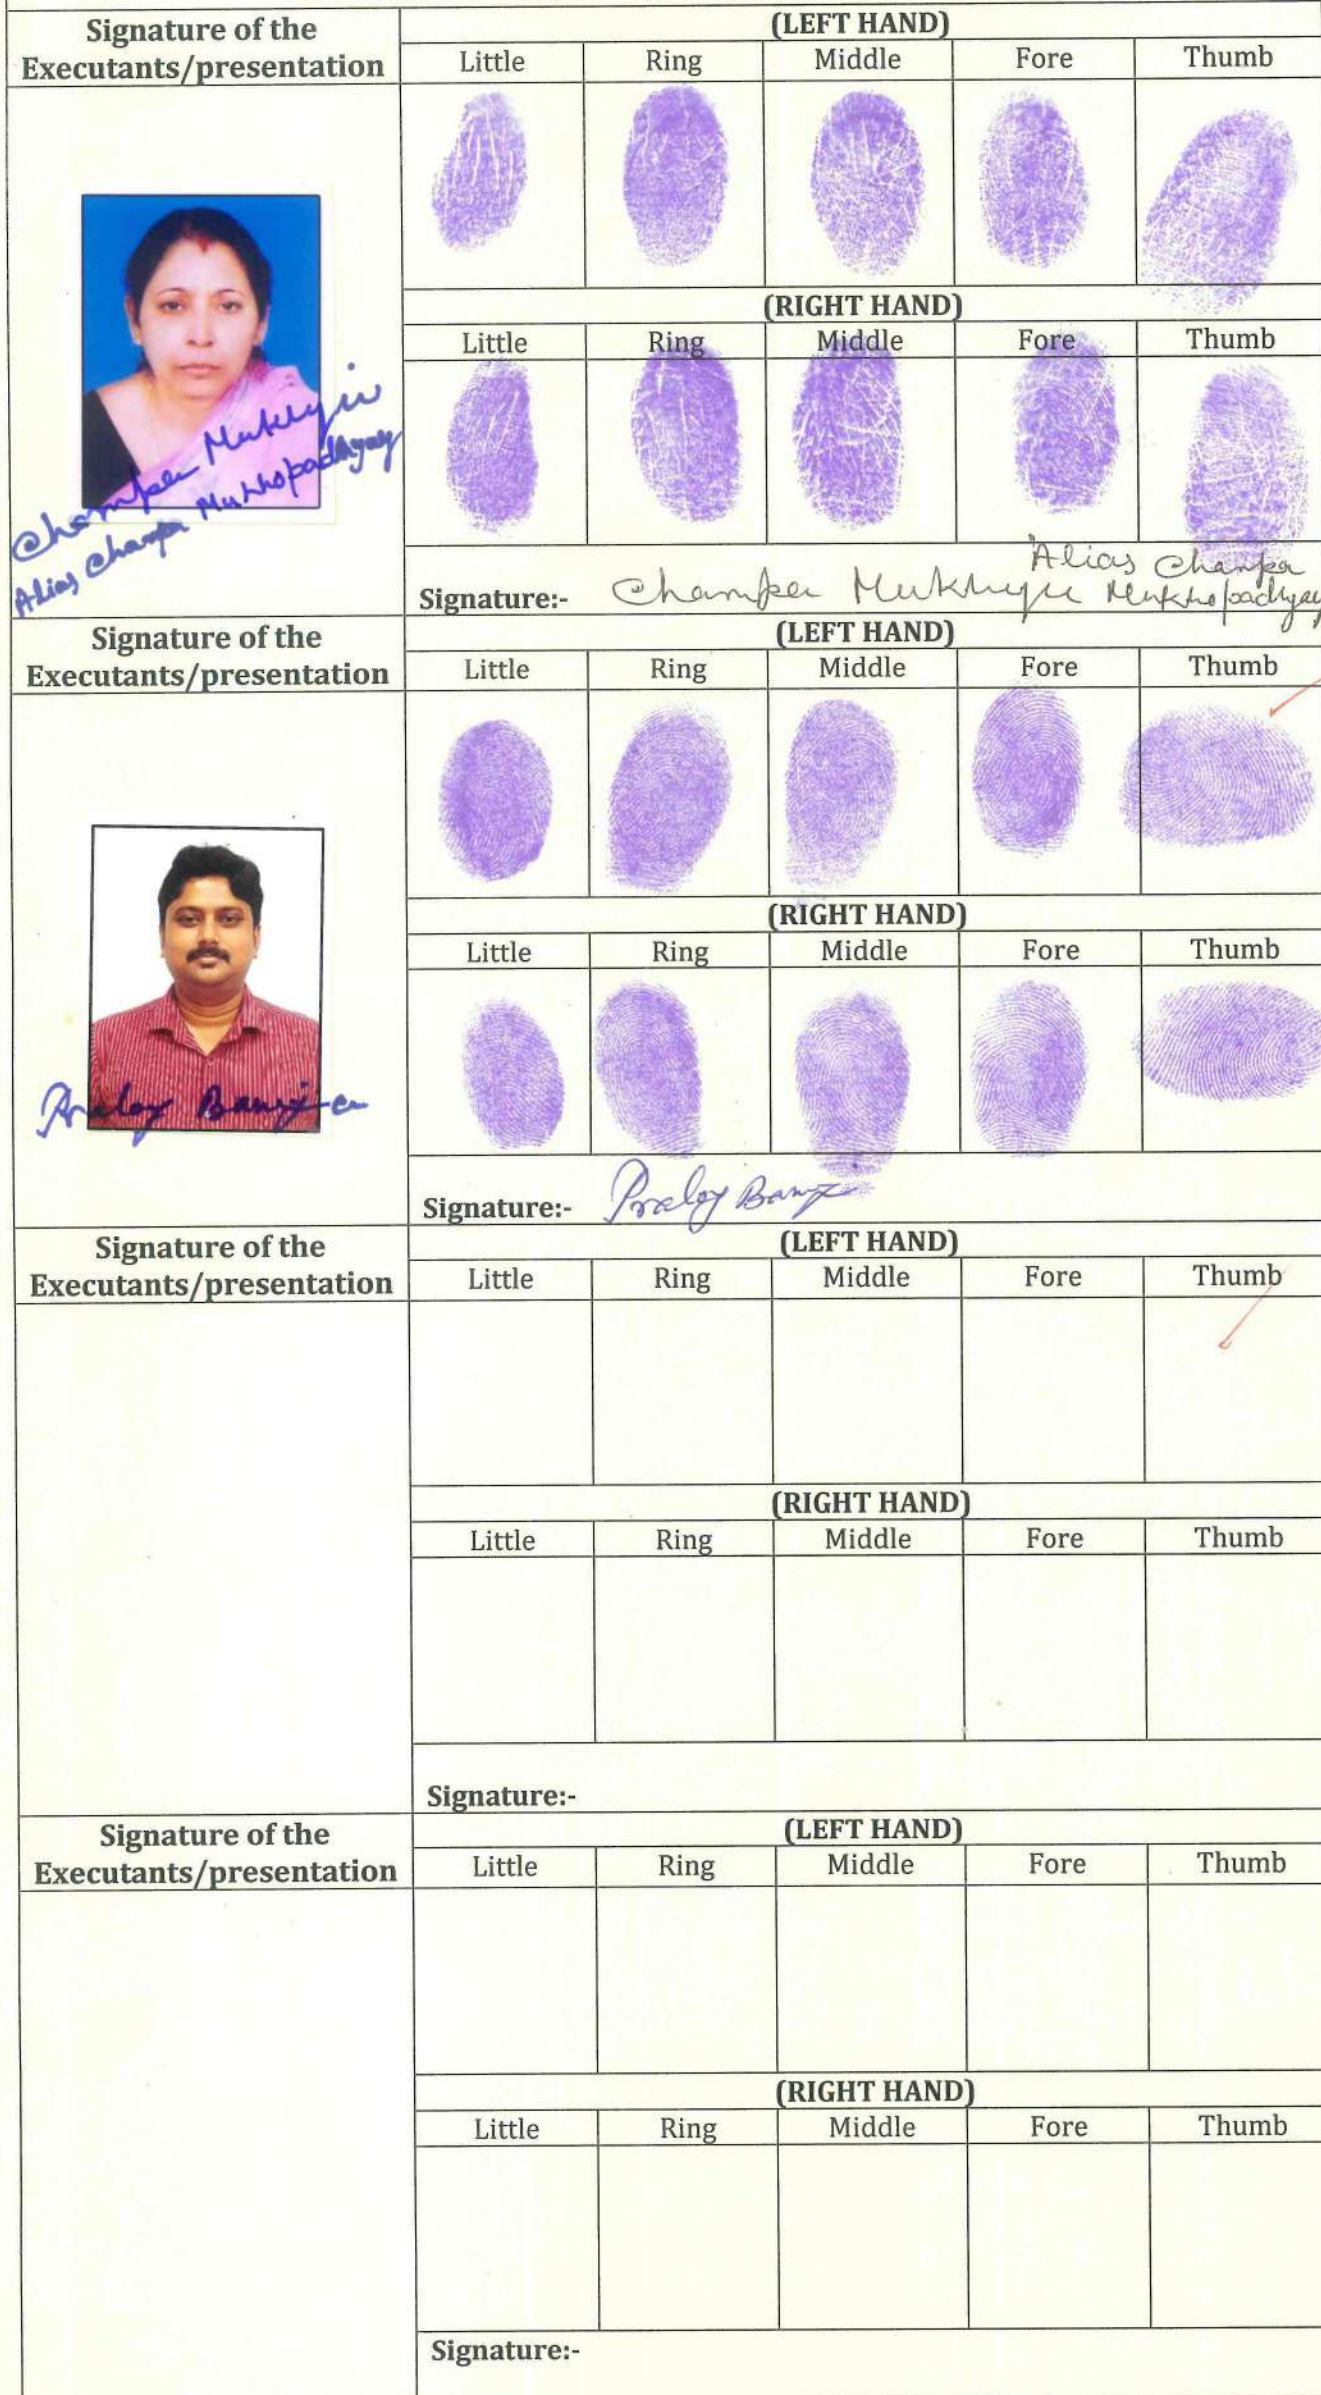 Signature of the
Executants/presentation
(LEFT HAND)
Little Ring Middle Fore Thumb
Champa Mukherjee
Alias Champa Mukhopadhyay
(RIGHT HAND)
Little Ring Middle Fore Thumb
Signature:- Champa Mukherjee Alias Champa
Mukhopadhyay
Signature of the
Executants/presentation
(LEFT HAND)
Little Ring Middle Fore Thumb
Pralay Banerjee
(RIGHT HAND)
Little Ring Middle Fore Thumb
Signature:- Pralay
Signature of the
Executants/presentation
(LEFT HAND)
Little Ring Middle Fore Thumb
(RIGHT HAND)
Little Ring Middle Fore Thumb
Signature:-
Signature of the
Executants/presentation
(LEFT HAND)
Little Ring Middle Fore Thumb
(RIGHT HAND)
Little Ring Middle Fore Thumb
Signature:-